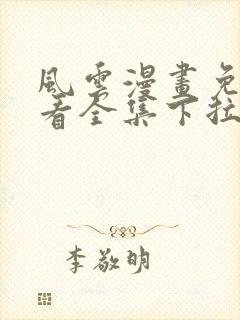 風雲漫畫免
看全集下拉
李敬明